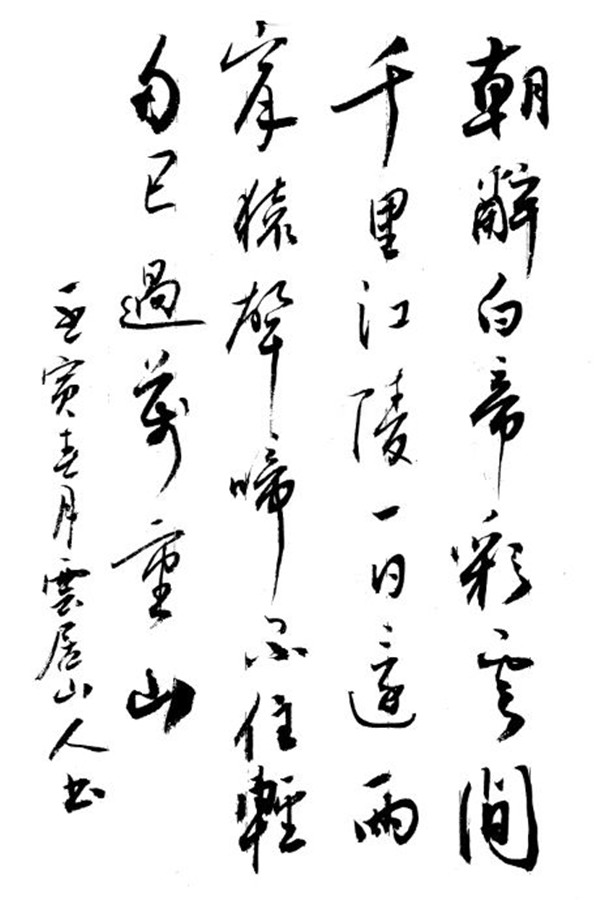 朝辭白帝彩雲間
千里江陵一日還兩
岸猿聲啼不住輕
舟已過萬重山
壬寅春月雲居山人书